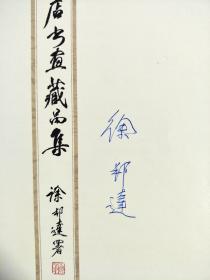 店书画藏品集
徐邦达署
徐邦达